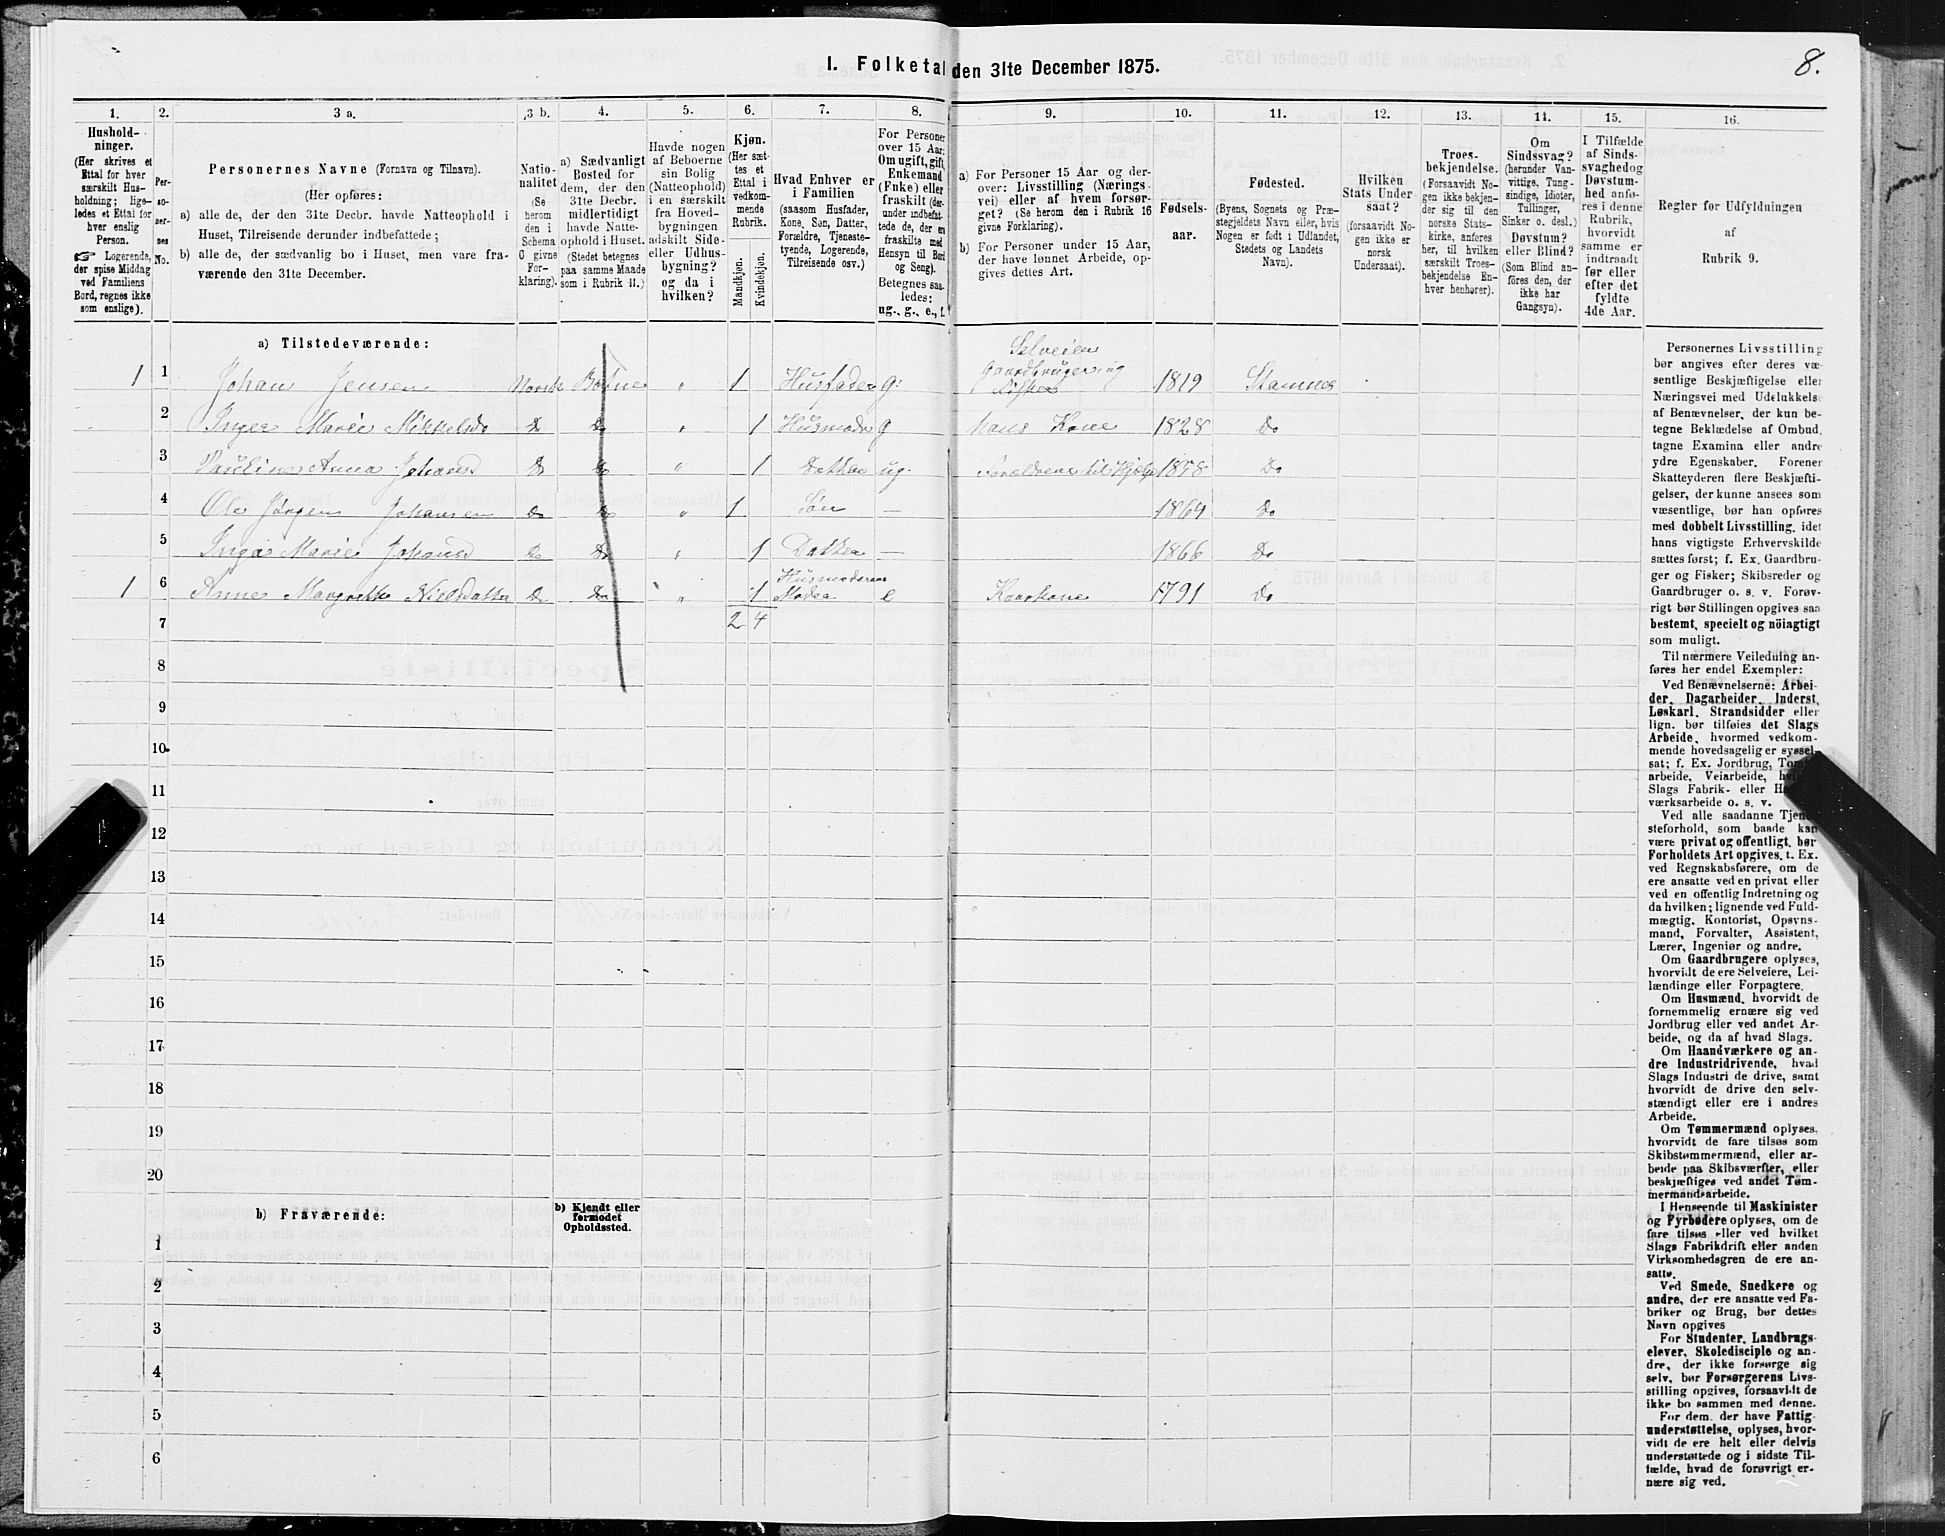 8.
I. Folketal den 31te December 1875.
1. 2. 3 a. 3 b. 4. 5. 6. 7. 8. 9. 10. 11. 12. 13. 14. 15. 16.
Hushold-
ninger.
(Her skrives et
Ettal for hver
særskilt Hus-
holdning; lige-
ledes et Ettal for
hver enslig
Person.
☞ Logerende,
der spise Middag
ved Familiens
Bord, regnes ikke
som enslige).
Per-
so-
ner-
nes
No.
Personernes Navne (Fornavn og Tilnavn).
(Her opføres:
a) alle de, der den 31te Decbr. havde Natteophold i
Huset, Tilreisende derunder indbefattede;
b) alle de, der sædvanlig bo i Huset, men vare fra-
værende den 31te December.
Natio-
nalitet
(Se
herom
den i
Schema
C givne
For-
klaring).
a) Sædvanligt
Bosted for
dem, der den
31te Decbr.
midlertidigt
havde Natte-
ophold i Huset.
(Stedet betegnes
paa samme Maade
som i Rubrik 11.)
Havde nogen
af Beboerne
sin Bolig
(Natteophold)
i en særskilt
fra Hoved-
bygningen
adskilt Side-
eller Udhus-
bygning?
og da i
hvilken?
Kjøn.
(Her sæt-
tes et
Ettal i
vedkom-
mende
Rubrik.
Mandkjøn.
Kvindekjøn.
Hvad Enhver er
i Familien
(saasom Husfader,
Kone, Søn, Datter,
Forældre, Tjeneste-
tyende, Logerende,
Tilreisende osv.)
For Personer
over 15 Aar:
Om ugift, gift,
Enkemand
(Enke) eller
fraskilt (der-
under indbefat-
tede de, der ere
fraskilte med
Hensyn til Bord
og Seng).
Betegnes saa-
ledes:
ug., g., e., f.
a) For Personer 15 Aar og der-
over: Livsstilling (Nærings-
vei) eller af hvem forsør-
get? (Se herom den i Rubrik 16
givne Forklaring).
b) For Personer under 15 Aar,
der have lønnet Arbeide, op-
gives dettes Art.
Fødsels-
aar.
Fødested.
(Byens, Sognets og Præ-
stegjeldets Navn eller, hvis
Nogen er født i Udlandet,
Stedets og Landets
Navn).
Hvilken
Stats Under-
saat?
(forsaavidt No-
gen ikke er
norsk
Undersaat).
Troes-
bekjendelse.
(Forsaavidt No-
gen ikke bekjen-
der sig til den
norske Stats-
kirke, anføres
her, til hvilken
særskilt Troes-
bekjendelse En-
hver henhører).
Om
Sindssvag?
(herunder Van-
vittige, Tung-
sindige, Idioter,
Tullinger,
Sinker o. desl.)
Døvstum?
eller Blind?
(Som Blind an-
føres den, der
ikke har
Gangsyn).
I Tilfælde
af Sinds-
svaghed og
Døvstum-
hed anfø-
res i denne
Rubrik,
hvorvidt
samme er
indtraadt
før eller
efter det
fyldte
4de Aar.
Regler for Udfyldningen
af
Rubrik 9.
a) Tilstedeværende:
1 1 Johan Jensen Norsk " 1 Husfader g: Selveien Gaardbruger og Fisker 1819 Stamnes
2 Inger Marie Mikkelsd Do Do " 1 Husmoder g Mans Kone 1828 Do
3 Pauline Anna Johansd Do Do " 1 Datter ug. Forældrene til Hjælp 1858 Do
4 Ole Jørgen Johansen Do Do " 1 Søn — 1864 Do
5 Inga Marie Johansd Do Do " 1 Datter — 1866 Do
1 6 Anne Margrethe Nielsdatter Do Do " 1 Husmoderens Moder e Kaarkone 1791 Do
7 2 4
8
9
10
11
12
13
14
15
16
17
18
19
20
b) Fraværende:
b) Kjendt eller
formodet
Opholdssted.
1
2
3
4
5
6
Personernes Livsstilling
bør angives efter deres væ-
sentlige Beskjæftigelse eller
Næringsvei med Udelukkelse
af Benævnelser, der kun be-
tegne Beklædelse af Ombud,
tagne Examina eller andre
ydre Egenskaber. Forener
Skatteyderen flere Beskjæfti-
gelser, der kunne ansees som
væsentlige, bør han opføres
med dobbelt Livsstilling, idet
hans vigtigste Erhvervskilde
sættes først; f. Ex. Gaardbru-
ger og Fisker; Skibsreder og
Gaardbruger o. s. v. Forøv-
rigt bør Stillingen opgives saa
bestemt, specielt og nöiagtigt
som muligt.
Til nærmere Veiledning an-
føres her endel Exempler:
Ved Benævnelserne: Arbei-
der, Dagarbeider, Inderst,
Løskarl, Strandsidder eller
lign. bør tilføies det Slags
Arbeide, hvormed vedkom-
mende hovedsagelig er syssel-
sat; f. Ex. Jordbrug, Tom-
arbeide, Veiarbeide,
Slags Fabrik- eller
værksarbeide o. s. v.
Ved alle saadanne Tjene-
steforhold, som baade kan
være privat og offentligt, bør
Forholdets Art opgives, t. Ex.
ved Regnskabsførere, om de
ere ansatte ved en privat eller
ved en offentlig Indretning og
da hvilken; lignende ved Fuld-
mægtig, Kontorist, Opsyns-
mand, Forvalter, Assistent,
Lærer, Ingeniør og andre.
Om Gaardbrugere oplyses,
hvorvidt de ere Selveiere, Lei-
lændinge eller Forpagtere.
Om Husmænd, hvorvidt de
fornemmelig ernære sig ved
Jordbrug eller ved andet Ar-
beide, og da af hvad Slags.
Om Haandværkere og an-
dre Industridrivende, hvad
Slags Industri de drive, samt
hvorvidt de drive den selv-
stændigt eller ere i andres
Arbeide.
Om Tømmermænd oplyses,
hvorvidt de fare tilsøs som
Skibstømmermænd, eller ar-
beide paa Skibsværfter, eller
beskjæftiges ved andet Tøm-
mermandsarbeide.
I Henseende til Maskinister
og Fyrbødere oplyses, om de
fare tilsøs eller ved hvilket
Slags Fabrikdrift eller anden
Virksomhedsgren de ere an-
satte.
Ved Smede, Snedkere og
andre, der ere ansatte ved Fa-
briker og Brug, bør dettes
Navn opgives
For Studenter, Landbrugs-
elever, Skoledisciple og an-
dre, der ikke forsørge sig
selv, bør Forsørgerens Livs-
stilling opgives, forsaavidt de
ikke bo sammen med denne.
For dem, der have Fattig-
understøttelse, oplyses, hvor-
vidt de ere helt eller delvis
understøttede og i sidste Til-
fælde, hvad de forøvrigt er-
nære sig ved.